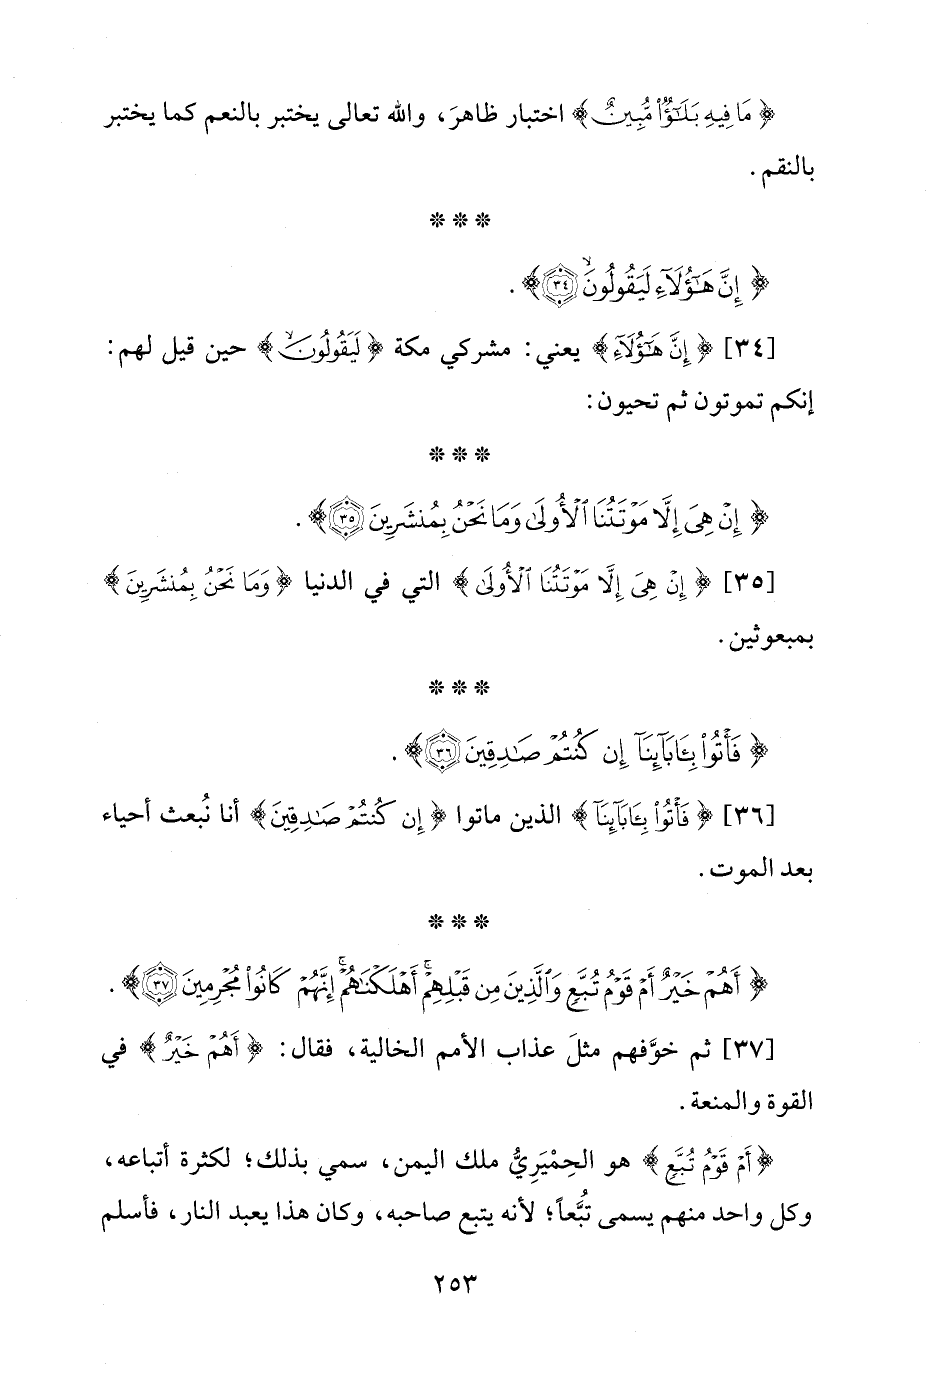 ﴿ مَا فِيهِ بَلَٰٓؤٌا۟ مُّبِينٌ ﴾ اختبار ظاهرَ، والله تعالى يختبر بالنعم كما يختبر
بالنقم .
* * *
﴿ إِنَّ هَٰٓؤُلَآءِ لَيَقُولُونَ ۙ ٣٤ ﴾ .
[٣٤] ﴿ إِنَّ هَٰٓؤُلَآءِ ﴾ يعني: مشركي مكة ﴿ لَيَقُولُونَ ۙ ﴾ حين قيل لهم:
إنكم تموتون ثم تحيون:
* * *
﴿ إِنْ هِىَ إِلَّا مَوْتَتُنَا ٱلْأُولَىٰ وَمَا نَحْنُ بِمُنشَرِينَ ٣٥ ﴾ .
[٣٥] ﴿ إِنْ هِىَ إِلَّا مَوْتَتُنَا ٱلْأُولَىٰ ﴾ التي في الدنيا ﴿ وَمَا نَحْنُ بِمُنشَرِينَ ﴾
بمبعوثين .
* * *
﴿ فَأْتُوا۟ بِـَٔابَآئِنَآ إِن كُنتُمْ صَٰدِقِينَ ٣٦ ﴾ .
[٣٦] ﴿ فَأْتُوا۟ بِـَٔابَآئِنَآ ﴾ الذين ماتوا ﴿ إِن كُنتُمْ صَٰدِقِينَ ﴾ أنا نُبعث أحياء
بعد الموت .
* * *
﴿ أَهُمْ خَيْرٌ أَمْ قَوْمُ تُبَّعٍ وَٱلَّذِينَ مِن قَبْلِهِمْ ۚ أَهْلَكْنَٰهُمْ ۚ إِنَّهُمْ كَانُوا۟ مُجْرِمِينَ ٣٧ ﴾ .
[٣٧] ثم خوَّفهم مثلَ عذاب الأمم الخالية، فقال: ﴿ أَهُمْ خَيْرٌ ﴾ في
القوة والمنعة .
﴿ أَمْ قَوْمُ تُبَّعٍ ﴾ هو الحِمْيَرِيُّ ملك اليمن، سمي بذلك؛ لكثرة أتباعه،
وكل واحد منهم يسمى تُبَّعاً؛ لأنه يتبع صاحبه، وكان هذا يعبد النار، فأسلم
٢٥٣